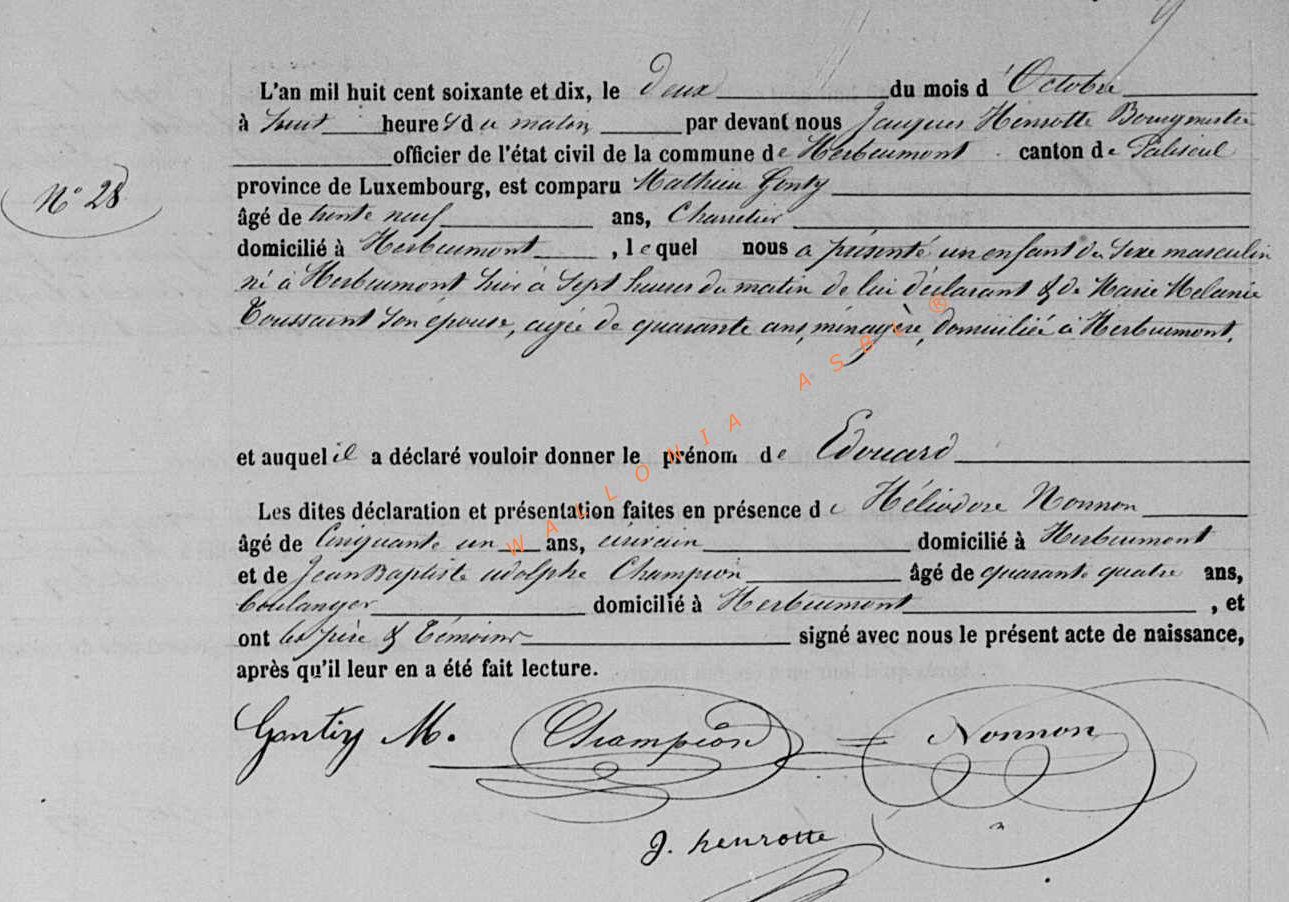 L'an mil huit cent soixante et dix, le Deux du mois d'Octobre
à huit heures du matin par devant nous Jacques Henrotte Bourgmestre
officier de l'état civil de la commune de Herbeumont canton de Paliseul
N° 28
province de Luxembourg, est comparu Mathieu Gonty
âgé de trente neuf ans, Charretier
domicilié à Herbeumont, lequel nous a présenté un enfant du sexe masculin
né à Herbeumont hier à Sept heures du matin de lui déclarant & de Marie Melanie
Toussaint son épouse, agée de quarante ans, ménagère, domiciliée à Herbeumont.
et auquel il a déclaré vouloir donner le prénom de Edouard
Les dites déclaration et présentation faites en présence de Héliodore Nonnon
âgé de Cinquante un ans, écrivain domicilié à Herbeumont
et de Jean Baptiste adolphe Champion âgé de quarante quatre ans,
boulanger domicilié à Herbeumont, et
ont les père & Témoins signé avec nous le présent acte de naissance,
après qu'il leur en a été fait lecture.
M. Champion = Nonnon
J. henrotte
WALLONIA ASBL ®